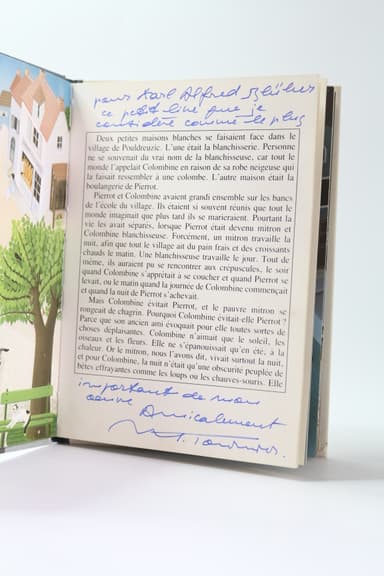 pour Karl Alfred Blüher
ce petit livre que je
considère comme le plus
Deux petites maisons blanches se faisaient face dans le
village de Pouldreuzic. L'une était la blanchisserie. Personne
ne se souvenait du vrai nom de la blanchisseuse, car tout le
monde l'appelait Colombine en raison de sa robe neigeuse qui
la faisait ressembler à une colombe. L'autre maison était la
boulangerie de Pierrot.
Pierrot et Colombine avaient grandi ensemble sur les bancs
de l'école du village. Ils étaient si souvent réunis que tout le
monde imaginait que plus tard ils se marieraient. Pourtant la
vie les avait séparés, lorsque Pierrot était devenu mitron et
Colombine blanchisseuse. Forcément, un mitron travaille la
nuit, afin que tout le village ait du pain frais et des croissants
chauds le matin. Une blanchisseuse travaille le jour. Tout de
même, ils auraient pu se rencontrer aux crépuscules, le soir
quand Colombine s'apprêtait à se coucher et quand Pierrot se
levait, ou le matin quand la journée de Colombine commençait
et quand la nuit de Pierrot s'achevait.
Mais Colombine évitait Pierrot, et le pauvre mitron se
rongeait de chagrin. Pourquoi Colombine évitait-elle Pierrot ?
Parce que son ancien ami évoquait pour elle toutes sortes de
choses déplaisantes. Colombine n'aimait que le soleil, les
oiseaux et les fleurs. Elle ne s'épanouissait qu'en été, à la
chaleur. Or le mitron, nous l'avons dit, vivait surtout la nuit,
et pour Colombine, la nuit n'était qu'une obscurité peuplée de
bêtes effrayantes comme les loups ou les chauves-souris. Elle
important de mon
œuvre Amicalement
M. Tournier